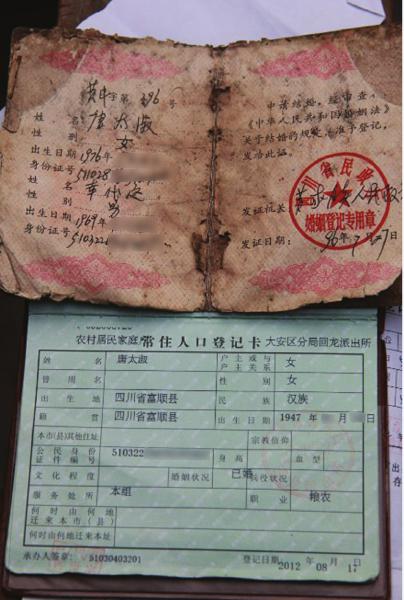 字第 296 号
姓名 唐太淑
性别 女
出生日期 1976年
身份证号 511028
姓名
性别 男
出生日期 1969年
身份证号 5103221
申请结婚，经审查，
《中华人民共和国婚姻法》
关于结婚的规定，准予登记，
发给此证。
四川省民政
婚姻登记专用章
发证机关：
发证日期：96年
农村居民家庭 常住人口登记卡 大安区分局回龙派出所
姓名 唐太淑 户主或与户主关系 女
曾用名 性别 女
出生地 四川省富顺县 民族 汉族
籍贯 四川省富顺县 出生日期 1947 年 月 日
本市(县)其他住址 宗教信仰
公民身份证件编号 510322 身高 血型
文化程度 婚姻状况 已婚 兵役状况
服务处所 本组 职业 粮农
何时由何地迁来本市(县)
何时由何地迁来本址
承办人签章： 51030403201 登记日期：2012 年 08 月 17